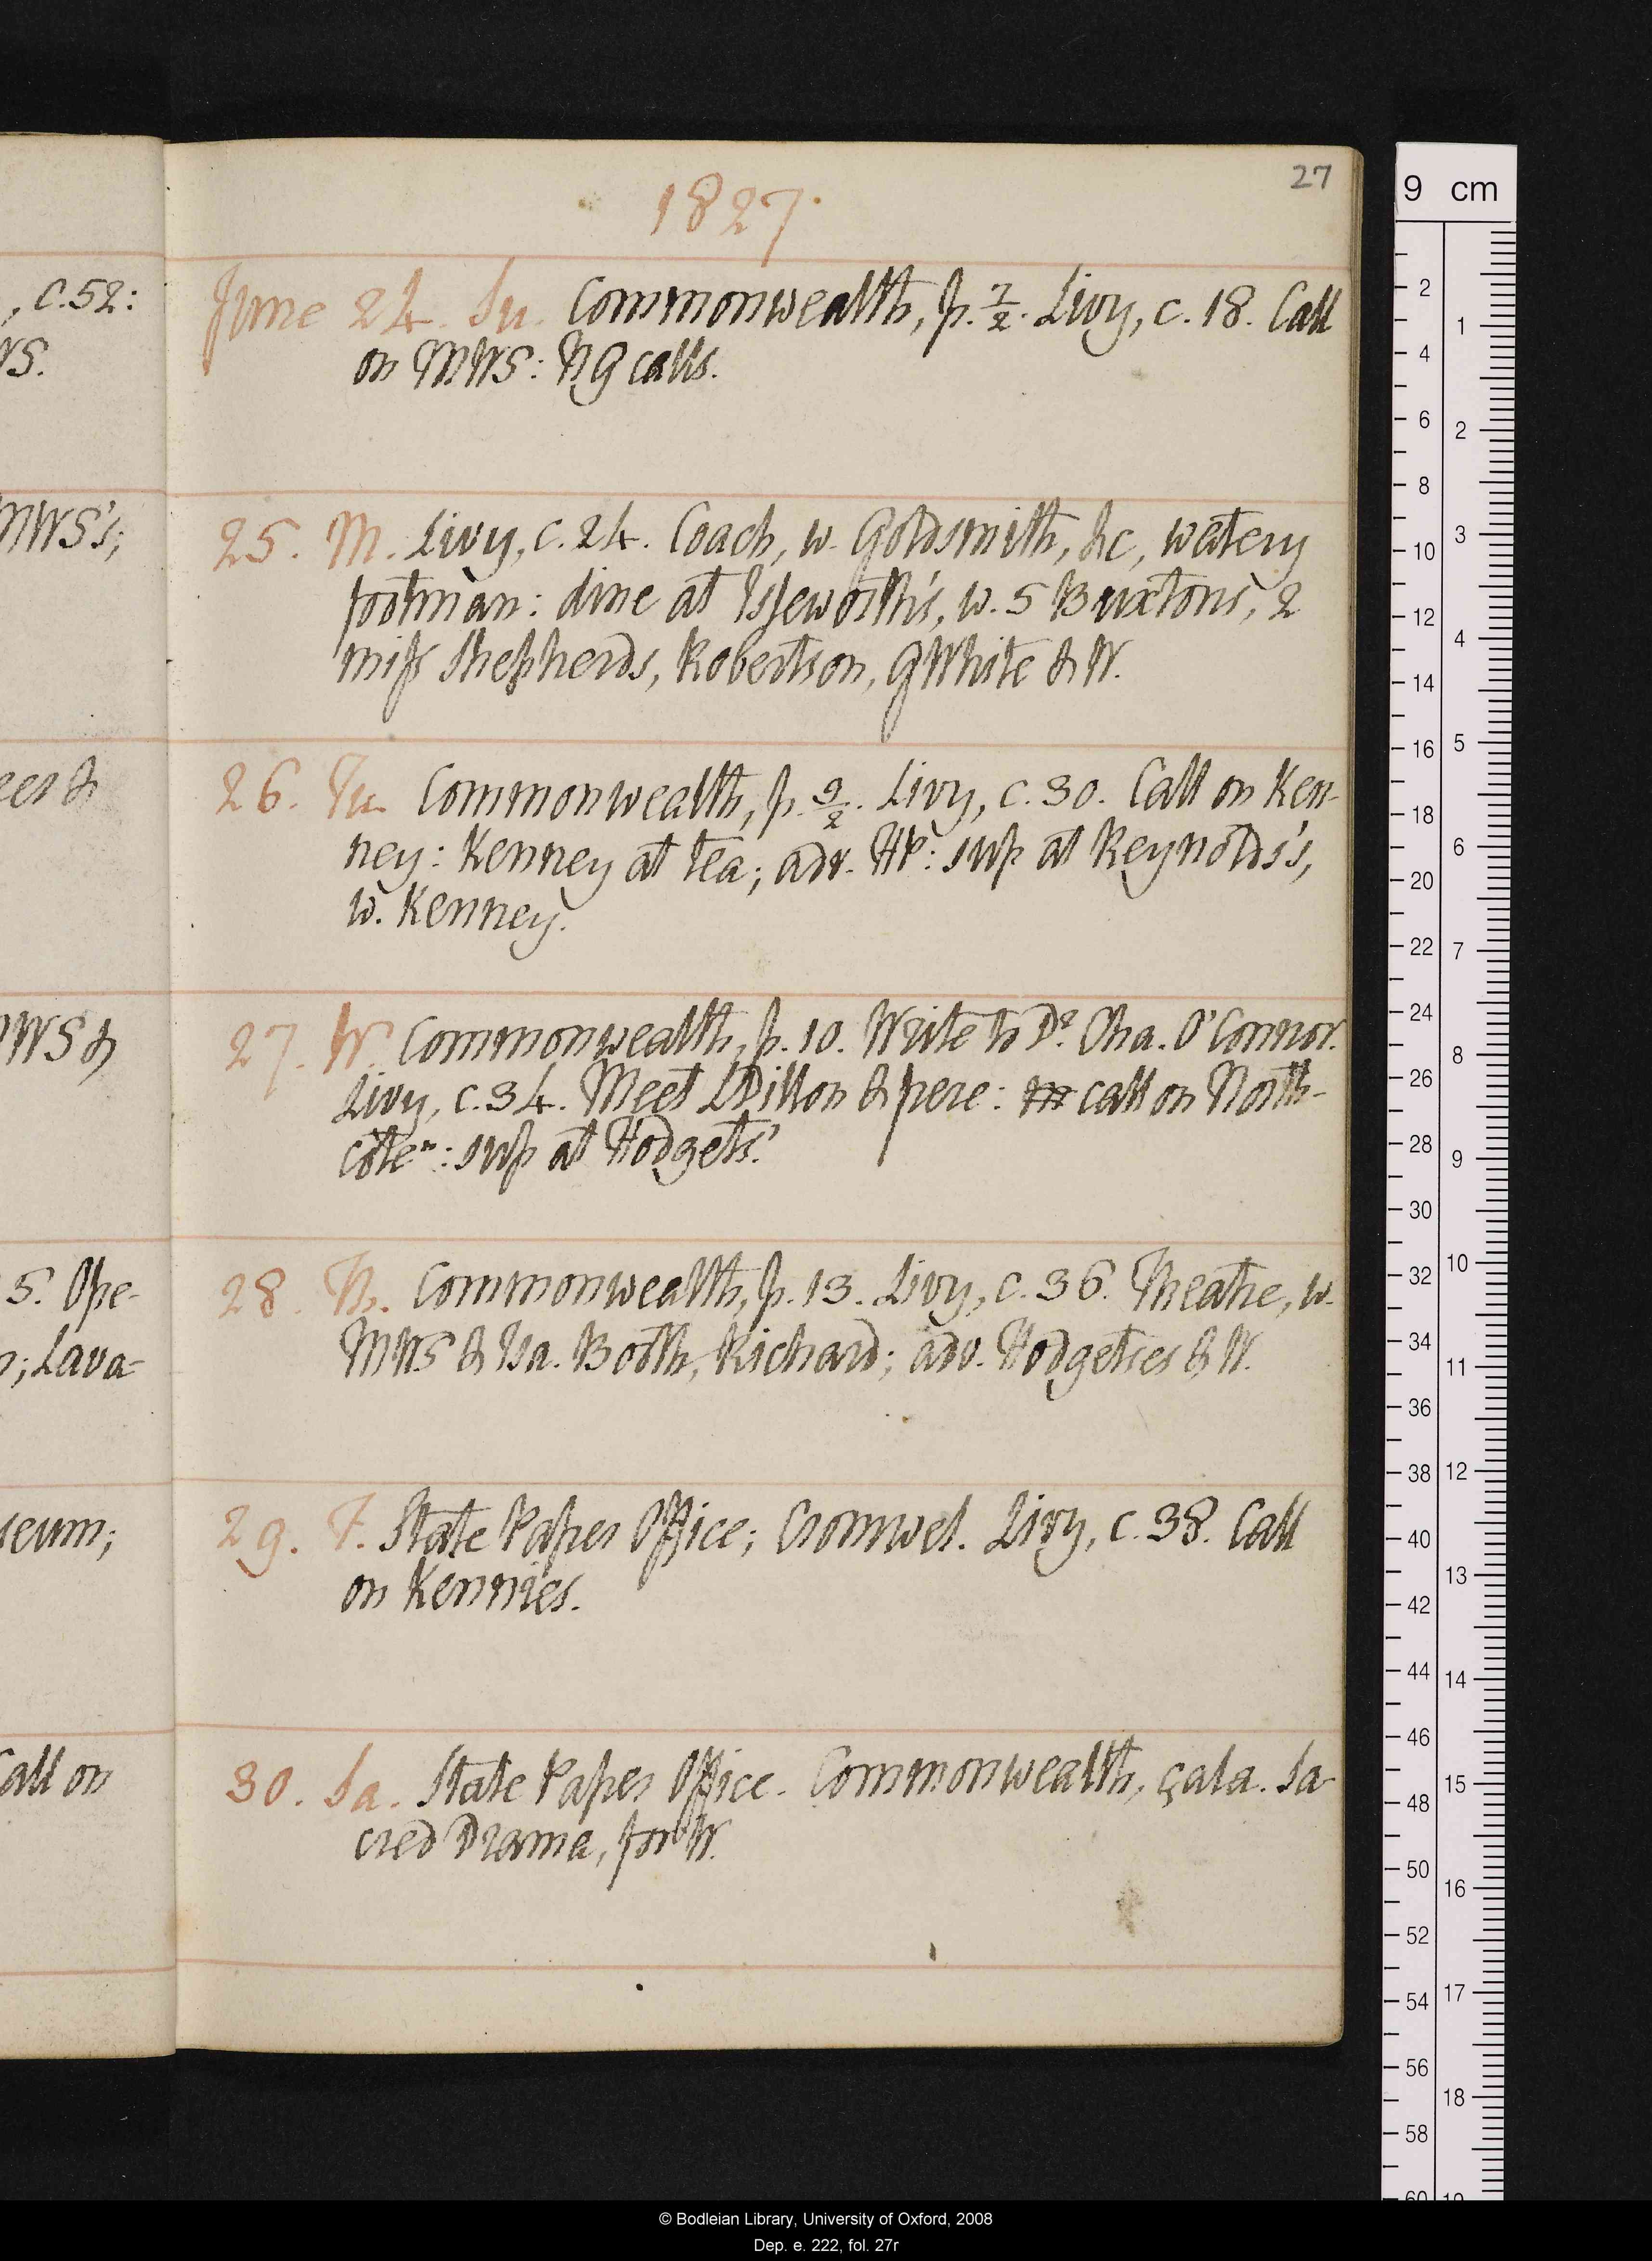 27
1827.
, c. 52:
WS.
June 24. Su. Commonwealth, p. 7/2. Livy, c. 18. Call
on MWS: NG calls.
MWS's;
25. M. Livy, c. 24. Coach, w. Goldsmith, &c, watery
footman: dine at Isleworth's, w. 5 Buxtons, 2
miss Shepherds, Robertson, GWhite & W.
26. Tu. Commonwealth, p. 9/2. Livy, c. 30. Call on Ken-
ney: Kenney at tea; adv. HP: sup at Reynolds's,
w. Kenney.
WS &
27. W. Commonwealth, p. 10. Write to Dr. Cha. O'Connor.
Livy, c. 34. Meet LDillon & pere: m call on North-
coten: sup at Hodgets'.
5. Ope-
; Lava-
28. Th. Commonwealth, p. 13. Livy, c. 36. Theatre, w.
MWS & Isa. Booth, Richard; adv. Hodgetses & W.
eum;
29. F. State Paper Office; Cromwel. Livy, c. 38. Call
on Kennies.
Call on
30. Sa. State Paper Office. Commonwealth, çala. Sa-
cred Drama, for W.
9 cm
2
4
6
8
10
12
14
16
18
20
22
24
26
28
30
32
34
36
38
40
42
44
46
48
50
52
54
56
58
60
1
2
3
4
5
6
7
8
9
10
11
12
13
14
15
16
17
18
19
© Bodleian Library, University of Oxford, 2008
Dep. e. 222, fol. 27r